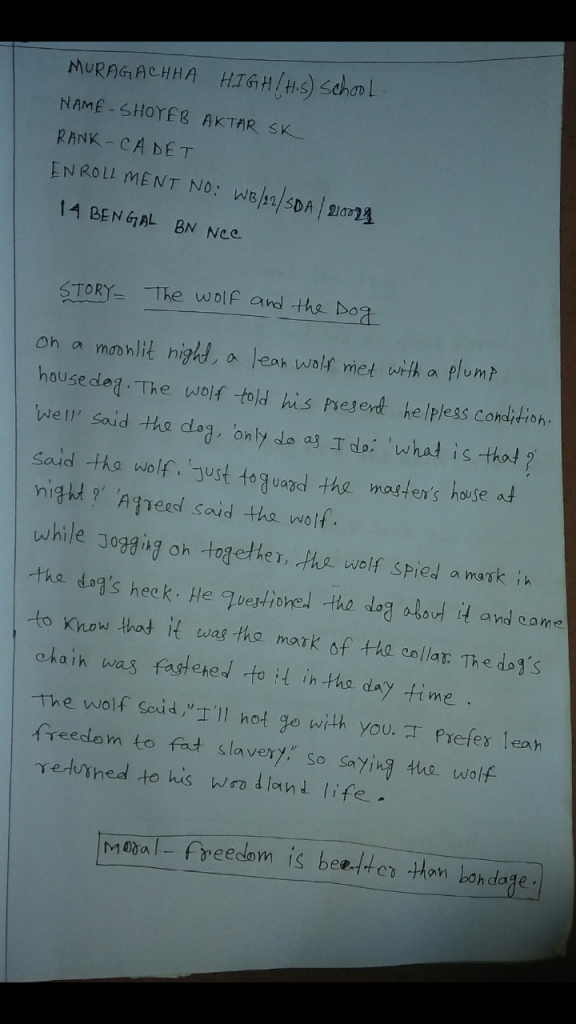 MURAGACHHA HIGH (H.S) School.
NAME - SHOYEB AKTAR SK
RANK - CADET
ENROLLMENT NO: WB/22/SDA/210021
14 BENGAL BN NCC
STORY = The wolf and the Dog
On a moonlit night, a lean wolf met with a plump
housedog. The wolf told his present helpless condition.
'well' said the dog, 'only do as I do.' 'what is that?
said the wolf. 'Just to guard the master's house at
night?' 'Agreed said the wolf.
While Jogging on together, the wolf spied a mark in
the dog's neck. He questioned the dog about it and came
to know that it was the mark of the collar. The dog's
chain was fastened to it in the day time.
The wolf said, "I'll not go with you. I prefer lean
freedom to fat slavery." so saying the wolf
returned to his woodland life.
Moral - freedom is beetter than bondage.